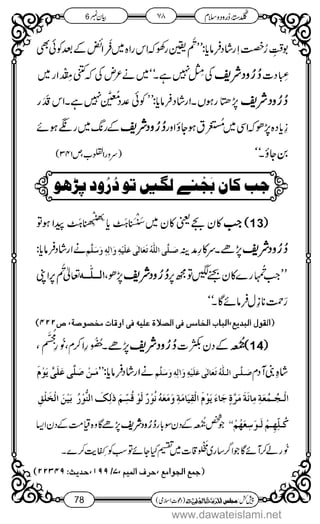 گلدستۂ درود و سلام ۷۸ بیان نمبر 6
بوقتِ رخصت ارشاد فرمایا: ’’تم یقین رکھو کہ اس راہ میں فرائض کے بعد کوئی بھی
عبادت دُرُودِ شریف کی مثل نہیں ہے۔‘‘ میں نے عرض کی کہ کتنی مقدار میں
دُرُودِ شریف پڑھتا رہوں۔ ارشاد فرمایا: ’’کوئی عدد معین نہیں ہے۔ اس قدر
زیادہ پڑھو کہ اسی میں مستغرق ہو جاؤ اور دُرُودِ شریف کے رنگ میں رنگے ہوئے
بن جاؤ۔‘‘ (سرور القلوب،ص ۳۴۱)
جب کان بجنے لگیں تو دُرُود پڑھو
(13) جب کان بجے یعنی کان میں سنسناہٹ یا بھنبھناہٹ پیدا ہو تو
دُرُودِ شریف پڑھے۔ سرکارِ مدینہ صَلَّی اللّٰہُ تَعَالٰی عَلَیْہِ وَاٰلِہٖ وَسَلَّم نے ارشاد فرمایا:
’’جب تمہارے کان بجنے لگیں تو مجھ پر دُرُودِ شریف پڑھو، اللّٰہ تعالٰی تم پر اپنی
رحمت نازل فرمائے گا۔‘‘
(القول البدیع،الباب الخامس فی الصلاة علیه فی اوقات مخصوصة، ص ۴۲۲)
(14) جُمُعَہ کے دن بکثرت دُرُودِ شریف پڑھے۔ حضورِ اکرم، نورِ مجسم،
شاہِ بنی آدم صَلَّی اللّٰہُ تَعَالٰی عَلَیْہِ وَاٰلِہٖ وَسَلَّم نے ارشاد فرمایا: ’’مَنْ صَلّٰی عَلَیَّ یَوْمَ
الْجُمُعَةِ مِائَةَ مَرَّةٍ جَاءَ یَوْمَ الْقِیَامَةِ وَمَعَهُ نُوْرٌ لَوْ قُسِمَ ذٰلِکَ النُّوْرُ بَیْنَ الْخَلْقِ
کُلِّهِمْ لَوَسِعَهُمْ‘‘ جو شخص جُمُعَہ کے دن سو بار دُرُودِ شریف پڑھے گا وہ قیامت کے دن ایسا
نور لے کر آئے گا جو اگر ساری مخلوقات میں تقسیم کیا جائے تو سب کو کفایت کرے۔
(جمع الجوامع ،حرف المیم ۷/ ۱۹۹، حدیث: ۲۲۳۳۹)
78
(دعوتِ اسلامی)
www.dawateislami.net